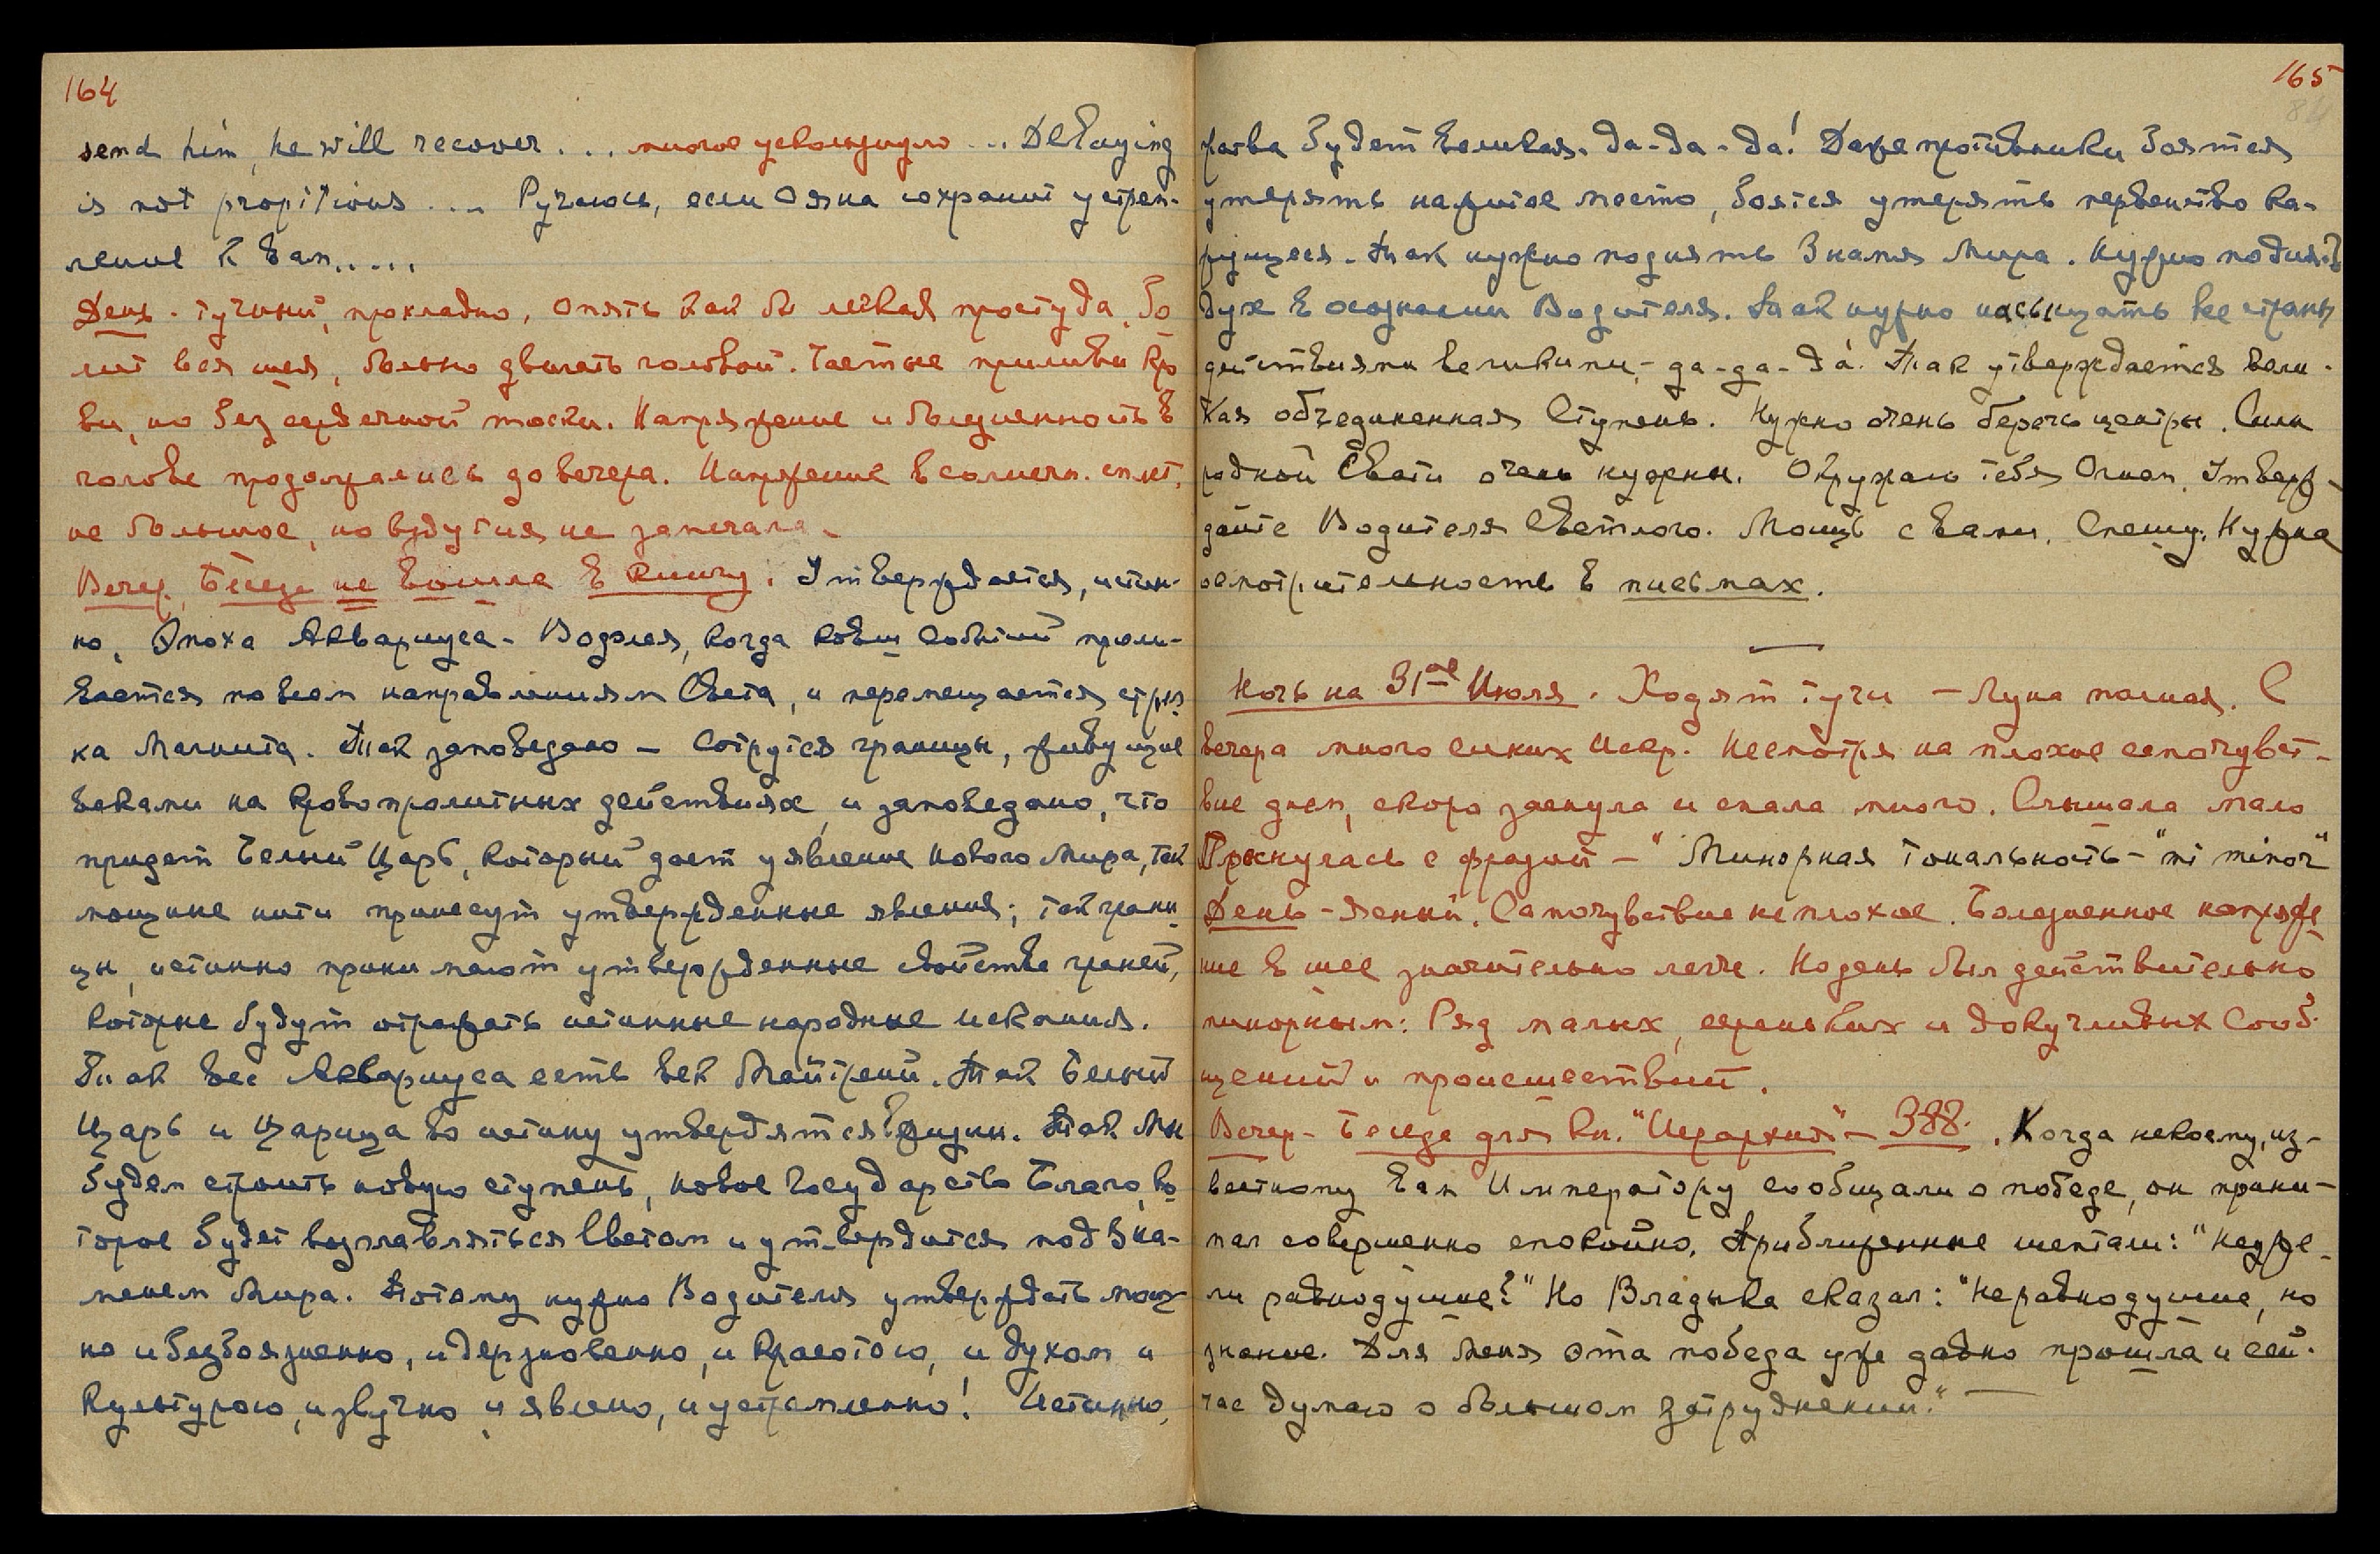 164
send him, he will recover... многое ускользнуло... Delaying
is not propitious.... Ручаюсь, если Ояна сохранит устрем-
ление к Вам.....
День. тучный, прохладно, опять как бы легкая простуда, бо
лит вся шея, больно двигать головой. Частые приливы кро
ви, но без сердечной тоски. Напряжение и болезненность в
голове продолжались до вечера. Напряжение в солнечн. сплет.
не большое, но вздутия не замечала.
Вечер, Беседа не вошла в книгу. Утверждается, истин-
но, Эпоха Аквариуса - Водолея, когда ковш событий проли-
вается по всем направлениям Света, и перемещается стрел
ка Магнита. Так заповедано — сотрутся границы, живущие
веками на кровопролитных действиях, и заповедано, что
придет Белый Царь, который дает уявление Нового Мира, так
мощные нити принесут утвержденные явления; так грани
цы, истинно принимают утвержденные свойства граней,
которые будут отражать истинные народные искания.
Так век Аквариуса есть век Майтрейи. Так Белый
Царь и Царица во истину утвердятся в жизни. Так Мы
будем строить новую ступень, новое Государство Блага, ко
торое будет возглавляться Светом и утвердится под Зна-
менем Мира. Потому нужно Водителя утверждать мощ-
но и безбоязненно, и дерзновенно, и красотою, и духом и
культурою, и звучно, и явлено, и устремленно! Истинно,
165
84
жатва будет великая. Да-да-да! Даже противники боятся
утерять нажитое место, боятся утерять первенство ка-
жущееся. Так нужно поднять Знамя Мира. Нужно поднять
дух в осознании Водителя. Так нужно насыщать все страны
действиями великими, - да-да-да. Так утверждается вели-
кая объединенная Ступень. Нужно очень беречь центры. Силы
родной Свати очень нужны. Окружаю тебя Огнем. Утверж-
дайте Водителя Светлого. Мощь с вами. Спешу. Нужна
осмотрительность в письмах.
Ночь на 31ое Июля. Ходят тучи — Луна полная. С
вечера много синих Искр. Несмотря на плохое самочувст-
вие днем, скоро заснула и спала много. Слышала мало
Проснулась с фразой — "Минорная тональность - "mi minor"
День - ясный. Самочувствие неплохое. Болезненное напряже
ние в шее значительно легче. Но день был действительно
минорным: Ряд малых, сереньких и докучливых сооб-
щений и происшествий.
Вечер - Беседа для кн. "Иерархия" - 388. Когда некоему, из-
вестному Вам Императору сообщали о победе, он прини-
мал совершенно спокойно. Приближенные шептали: "неуже-
ли равнодушие?" Но Владыка сказал: "Не равнодушие, но
знание. Для меня эта победа уже давно прошла и сей-
час думаю о большом затруднении." —